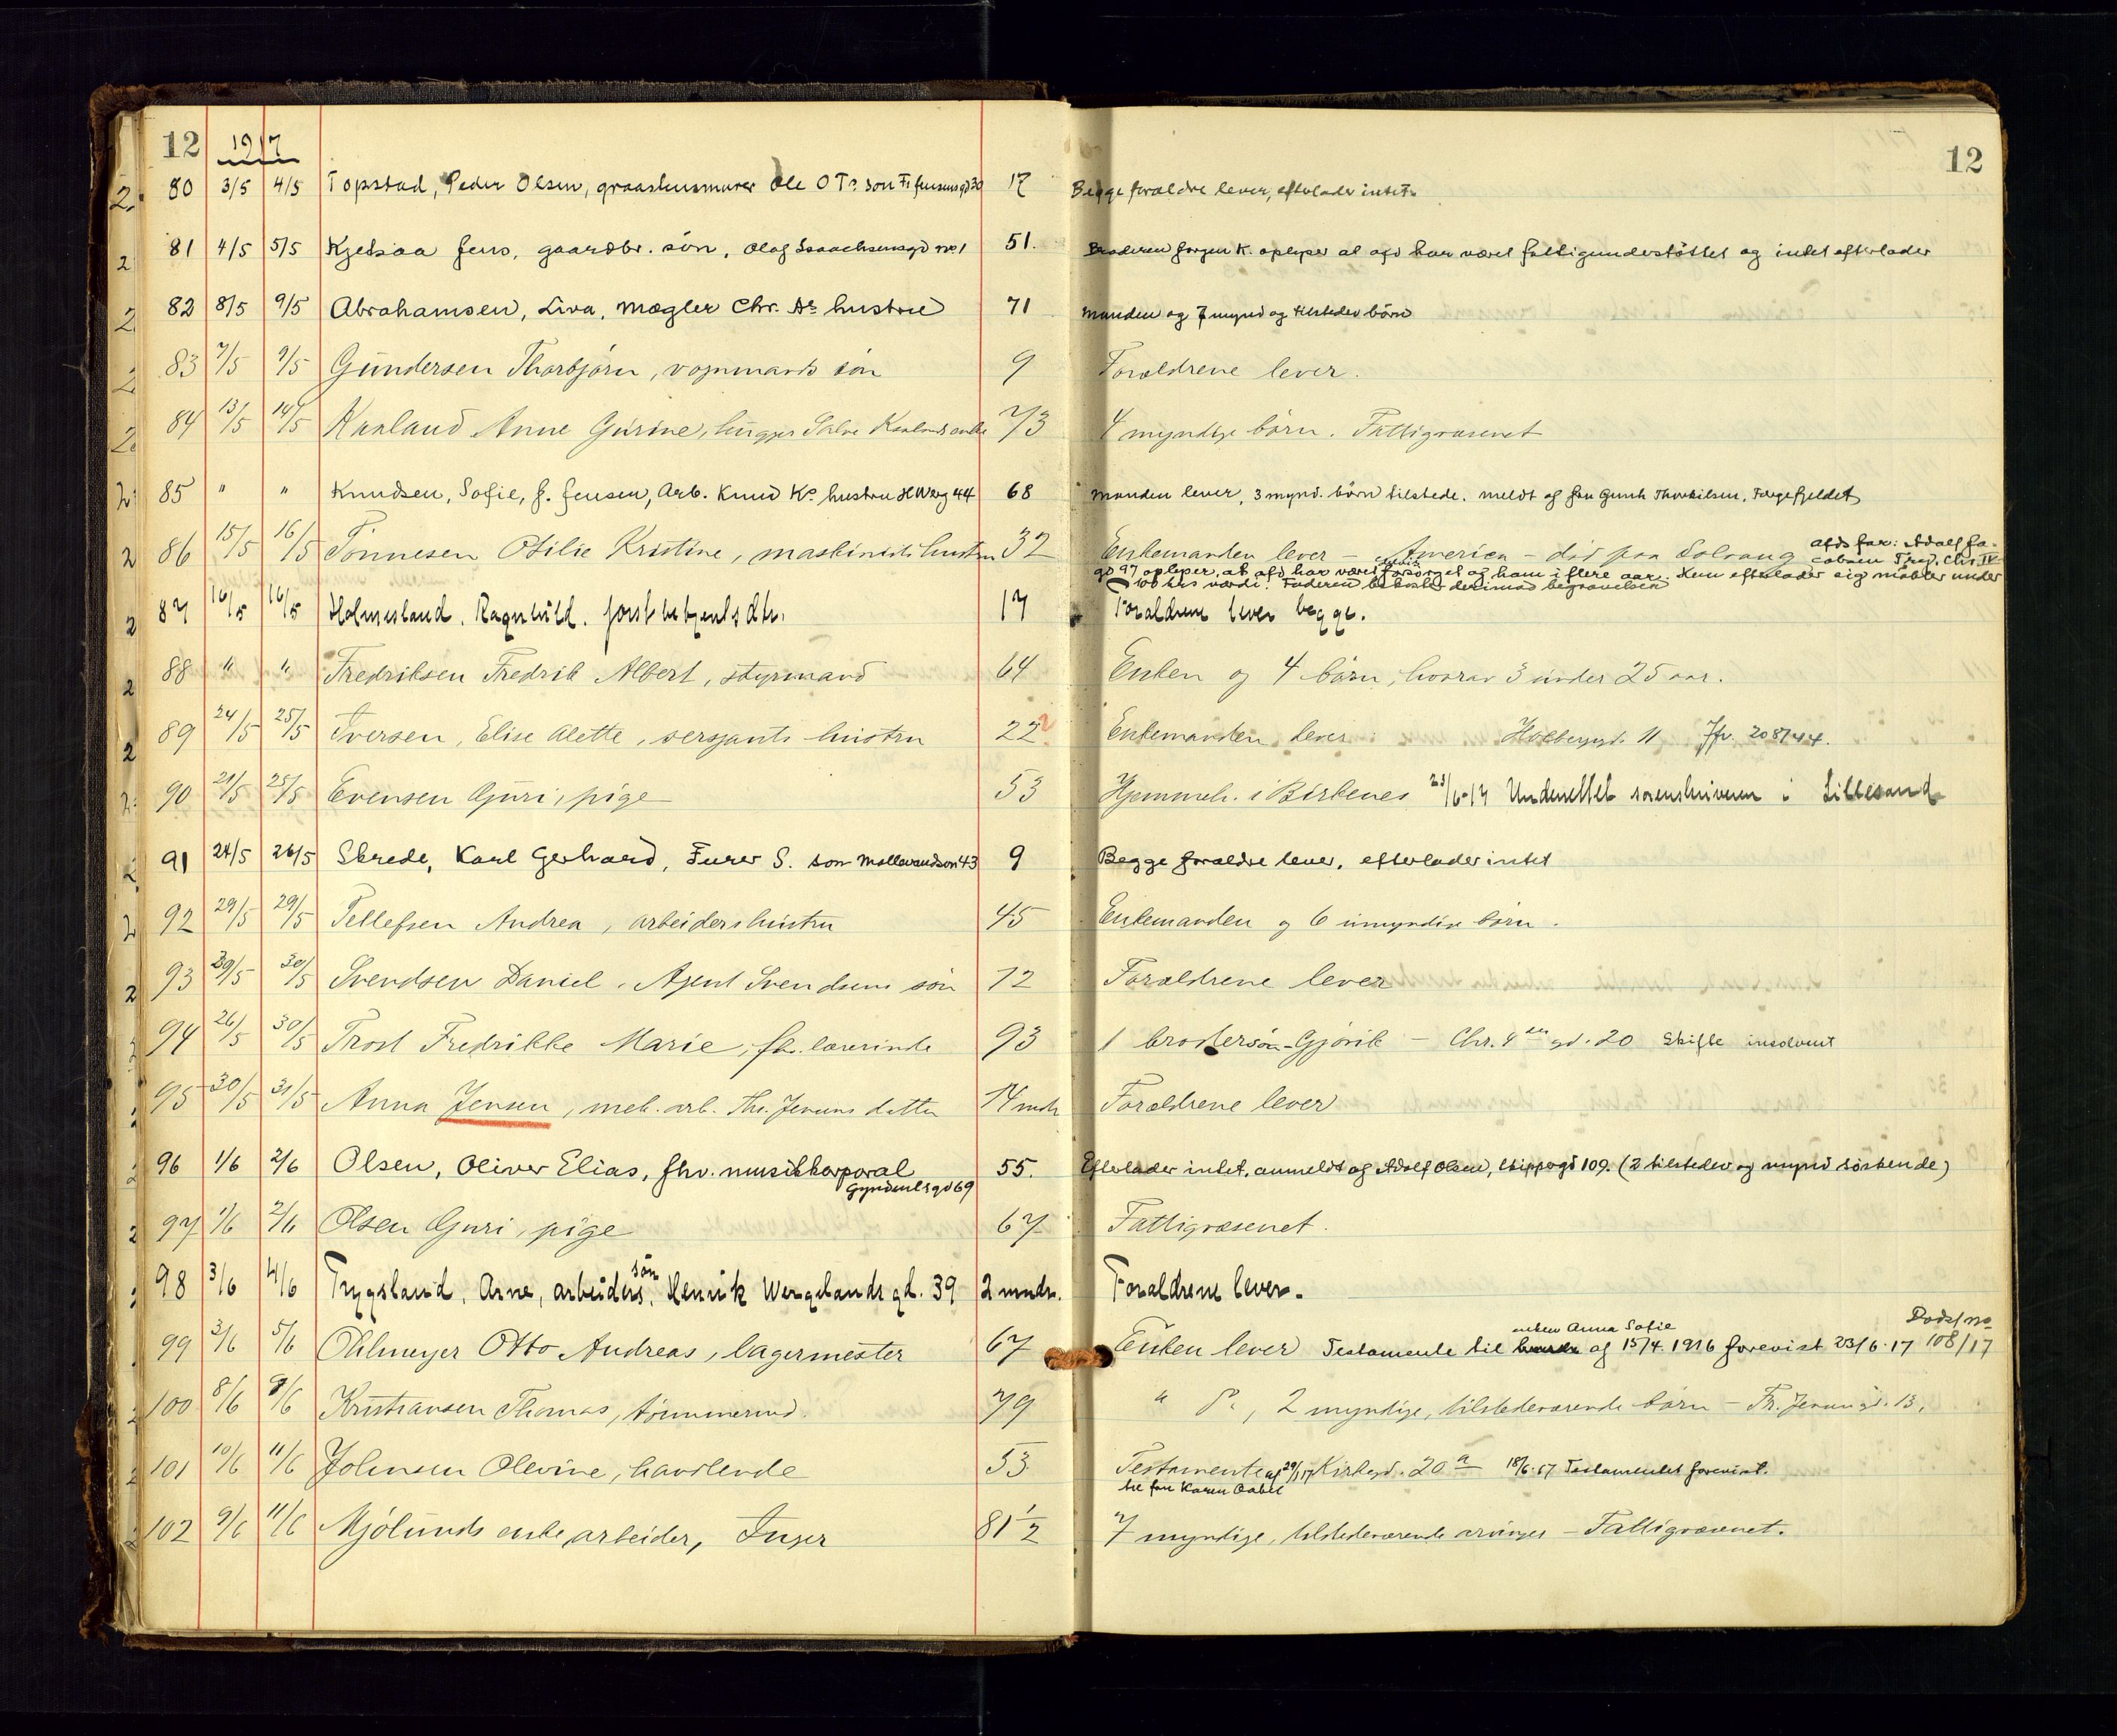 12 1917 12
80 3/5 4/5 Topstad, Peder Olsen, graastensmurer Ole O Ts søn Fr. Jensensgd 30 17 Begge forældre lever, efterlader intet.
81 4/5 5/5 Kjetsaa Jens, gaardbr. søn, Olaf Isaachsensgd no 1 51. Broderen Jørgen K. oplyser at afd har været fattigunderstøttet og intet efterlader
82 8/5 9/5 Abrahamsen, Liva, mægler Chr. As hustru 71 manden og 7 mynd og tilstedev børn
83 7/5 9/5 Gundersen Thorbjørn, vognmands søn 9 Forældrene lever.
84 13/5 14/5 Kaaland Anne Gurine, Salve Kaalands enke 73 4 myndige børn. Fattigvæsenet
85 " " Knudsen, Sofie, f. Jensen, Arb. Knud Ks hustru H Werg 44 68 manden lever, 3 mynd. børn tilstede. meldt af fru Gunh Thorkilsen, Fargefjeldet
86 15/5 16/5 Tønnesen Otilie Kristine, maskinists hustru 32 Enkemanden lever – America – død paa Solvang afds far: Adolf Ja-
cobsen Tred. Chr. IV
gd 97 oplyser, at afd har været forsørget og ham i flere aar. Hun efterlader sig møbler under
100 krs værdi. Faderen bekoster derimod begravelsen
87 16/5 16/5 Holmesland, Ragnhild, forstbetjents dtr. 17 Forældrene lever begge.
88 " " Fredriksen Fredrik Albert, styrmand 64 Enken og 4 børn, hvorav 3 under 25 aar.
89 24/5 25/5 Iversen, Elise Alette, sersjants hustru 22 Enkemanden lever Holbergsgd. 11 Jfr. 208/44.
90 21/5 25/5 Evensen Guri, pige 53 Hjemmeh. i Birkenes 23/6-17 Underrettet sorenskriveren i Lillesand
91 24/5 26/5 Skrede, Karl Gerhard, Furer S. søn Møllevandsvn 43 9 Begge forældre lever, efterlader intet
92 29/5 29/5 Tellefsen Andrea, arbeiders hustru 45 Enkemanden og 6 umyndige børn.
93 30/5 30/5 Svendsen Daniel, Agent Svendsens søn 12 Forældrene lever
94 26/5 30/5 Trost Fredrikke Marie, fhv. lærerinde 93 1 brodersøn – Gjøvik – Chr. 4den gd. 20 Skifte insolvent
95 30/5 31/5 Anna Jensen, mek. arb. Thv. Jensens datter 14 mdr Forældrene lever
96 1/6 2/6 Olsen, Oliver Elias, fhv. musikkorporal 55. Efterlader intet, anmeldt af Adolf Olsen, Skippergd 109. (2 tilstedev og mynd søskende)
Gyldenløsgd 69
97 1/6 2/6 Olsen Guri, pige 67 Fattigvæsenet.
98 3/6 4/6 Trygsland, Arne, arbeiders søn, Henrik Wergelands gd. 39 2 mndr. Forældrene lever.
99 3/6 5/6 Ohlmeyer Otto Andreas, lagermester 67 Enken lever Testamente til enken Anna Sofie af 15/4 1916 forevist 23/6-17 Dødsf no 108/17
100 8/6 9/6 Kristiansen Thomas, tømmermd. 79 " do, 2 myndige, tilstedeværende børn – Fr. Jensensgd. 13.
101 10/6 11/6 Johnsen Olevine, handlende 53 Testamente af 29/1 17 Kirkegd. 20 a 18/6-17 Testamentet forevist.
til fru Karen Aabel
102 9/6 11/6 Mjølunds enke arbeider, Inger 81 1/2 7 myndige, tilstedeværende arvinger – Fattigvæsenet.